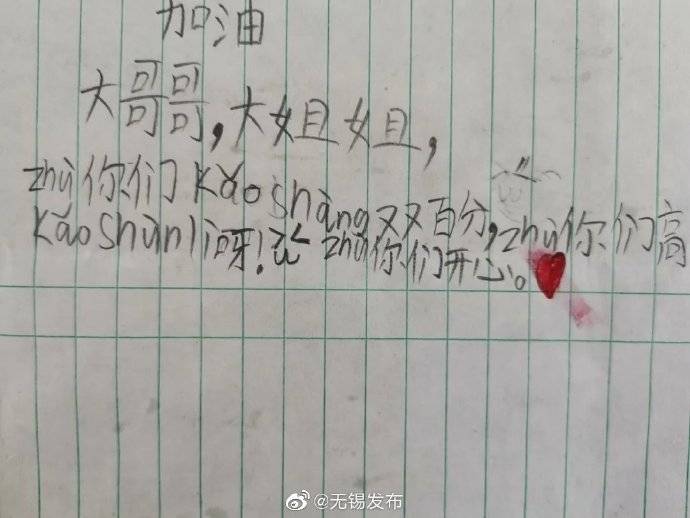 加油
大哥哥，大姐姐，
zhù你们kǎoshàng双百分，zhù你们高
kǎoshùnlì呀！zhù你们开心。
@无锡发布